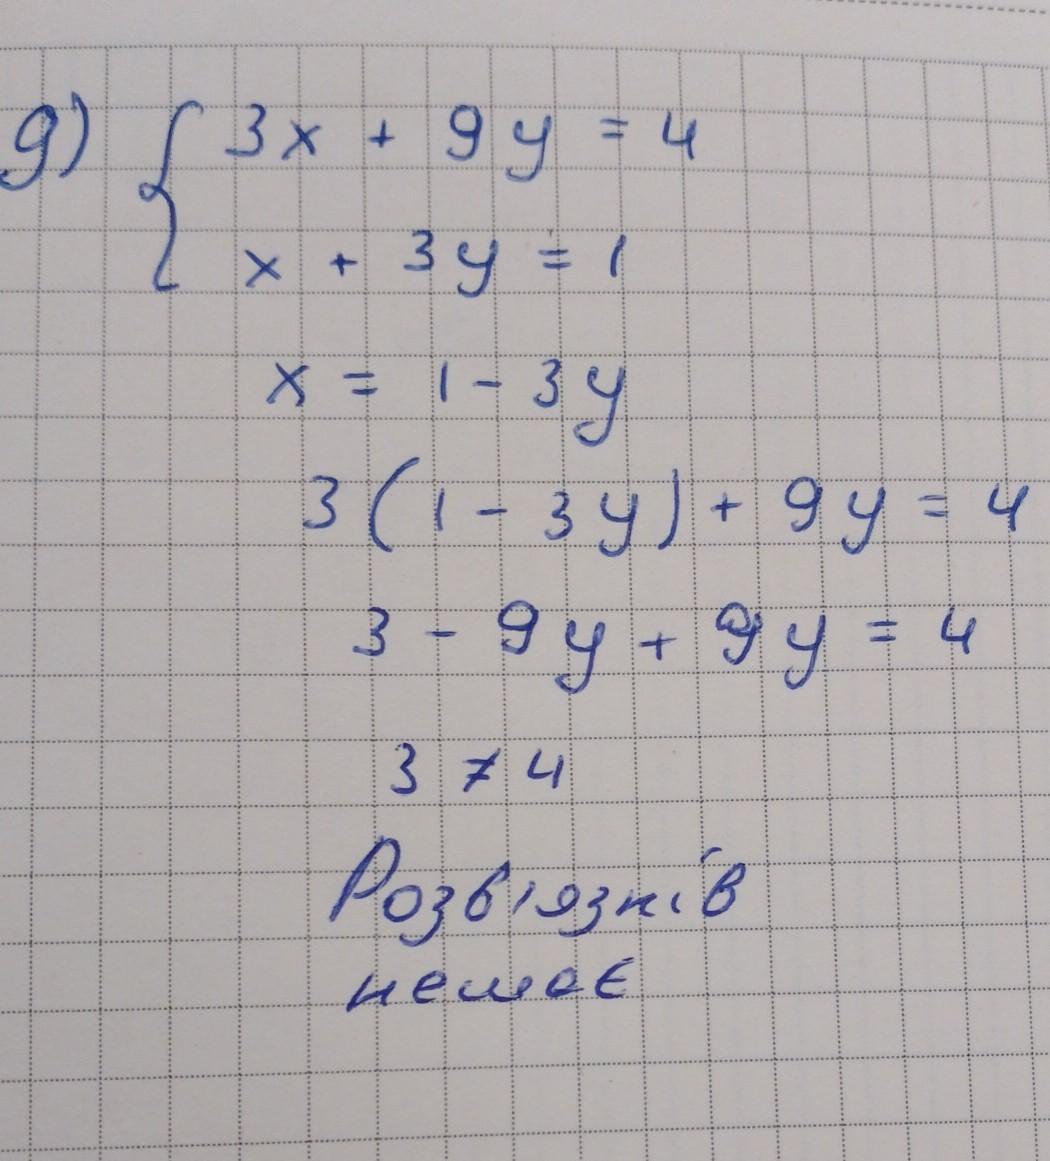 д) { 3x + 9y = 4
x + 3y = 1
x = 1 - 3y
3(1 - 3y) + 9y = 4
3 - 9y + 9y = 4
3 ≠ 4
Розв'язків
немає